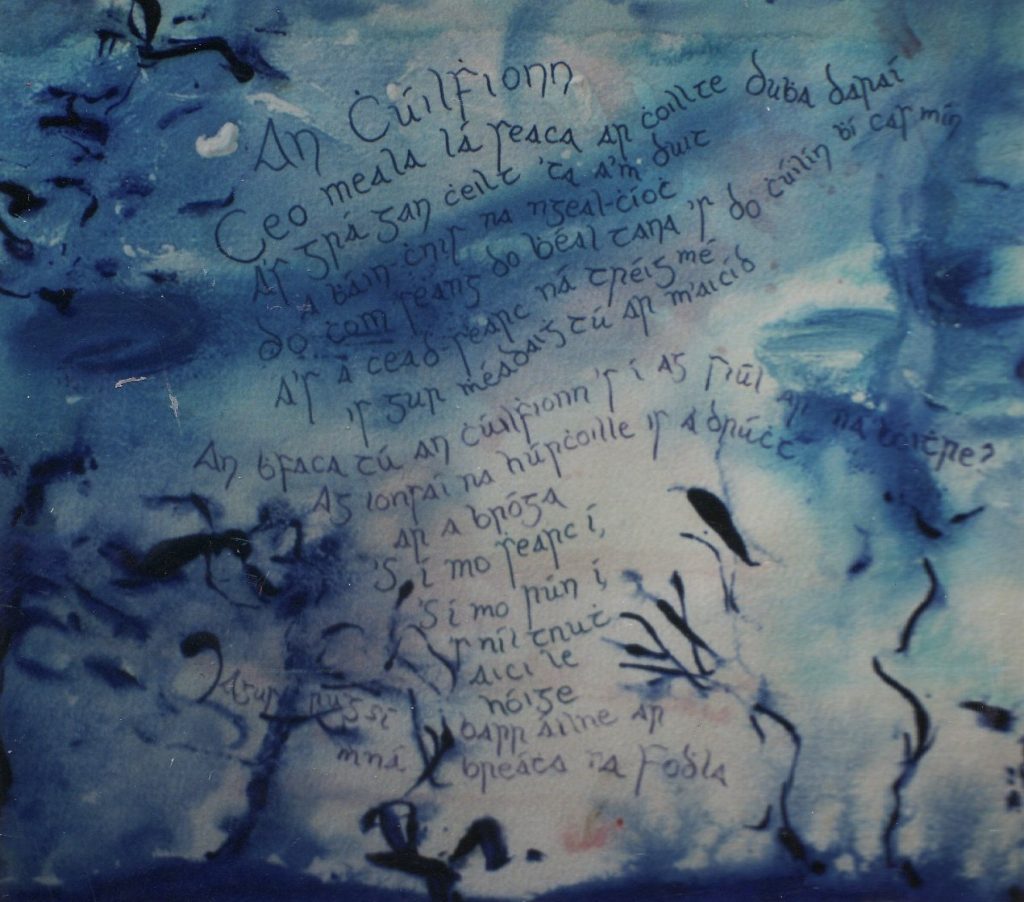 An Ċúilḟionn
Ceo meala lá seaca ar ċoillte duḃa daraí
A's grá gan ċeilt 'ta a'm duit
a ḃáin-ċnis na ngeal-ċíoċ
do ċom seang do ḃéal tana 's do ċúilín ḃí cas mín
A's a céad-searc ná tréig mé
is gur méadaiġ tú ar m'aicíd
An ḃfaca tú an ċúilḟionn 's í ag siúl ar na bóiṫre?
Ag lonraí na húrċoille is a drúċt
ar a bróga
'S í mo searc í,
'S í mo rún í,
's níl tnuṫ
aici le
hóige
Agus rug sí barr áilne ar
mná breáċa na Fodla